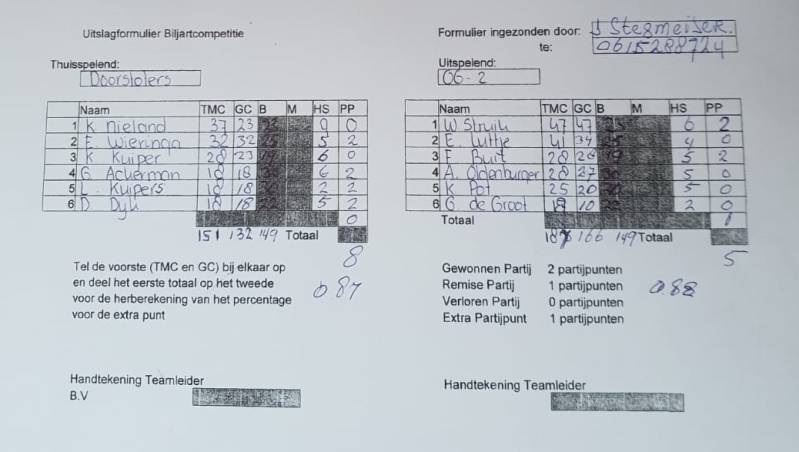 Uitslagformulier Biljartcompetitie
Formulier ingezonden door: J Stegmeijer.
te: 0615288724
Thuisspelend:
Doorstoters
Uitspelend:
O6-2
Naam TMC GC B M HS PP
1 K Nieland 37 23 9 0
2 E Wieringa 32 32 25 5 2
3 K Kuiper 28 23 6 0
4 G Ackerman 18 18 6 2
5 L Kuipers 18 18 2 2
6 D Dyk 18 18 5 2
0
151 132 149 Totaal
8
Naam TMC GC B M HS PP
1 W Struik 47 47 6 2
2 E. Luttje 41 34 25 4 0
3 F Buit 28 28 19 5 2
4 A. Oldenburger 28 27 5 0
5 K Pot 25 20 5 0
6 G de Groot 10 2 0
Totaal 1
166 149 Totaal
5
Tel de voorste (TMC en GC) bij elkaar op
en deel het eerste totaal op het tweede
voor de herberekening van het percentage
voor de extra punt
0 87
Gewonnen Partij 2 partijpunten
Remise Partij 1 partijpunten
Verloren Partij 0 partijpunten
Extra Partijpunt 1 partijpunten
0.88
Handtekening Teamleider
B.V
Handtekening Teamleider